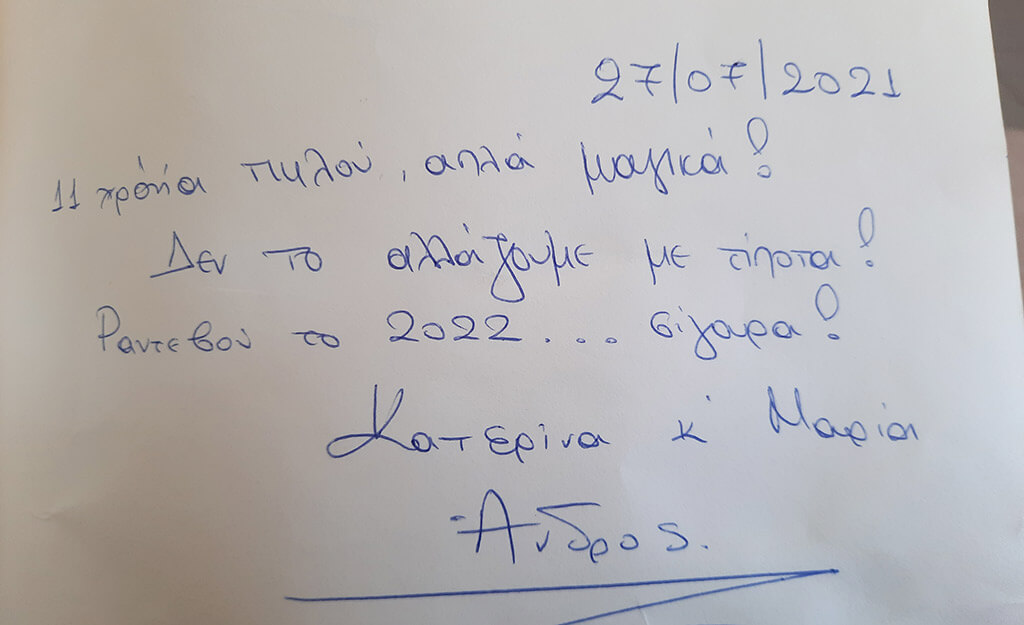 27/07/2021
11 χρόνια πηλού, απλά μαγικά!
Δεν το αλλάζουμε με τίποτα!
Ραντεβού το 2022... σίγαρα!
Κατερίνα κ' Μαρία
Άνδρος.